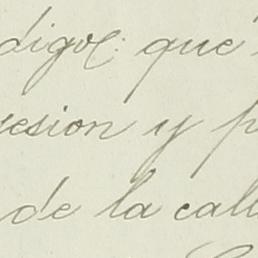 digo: que
esion y p
de la call